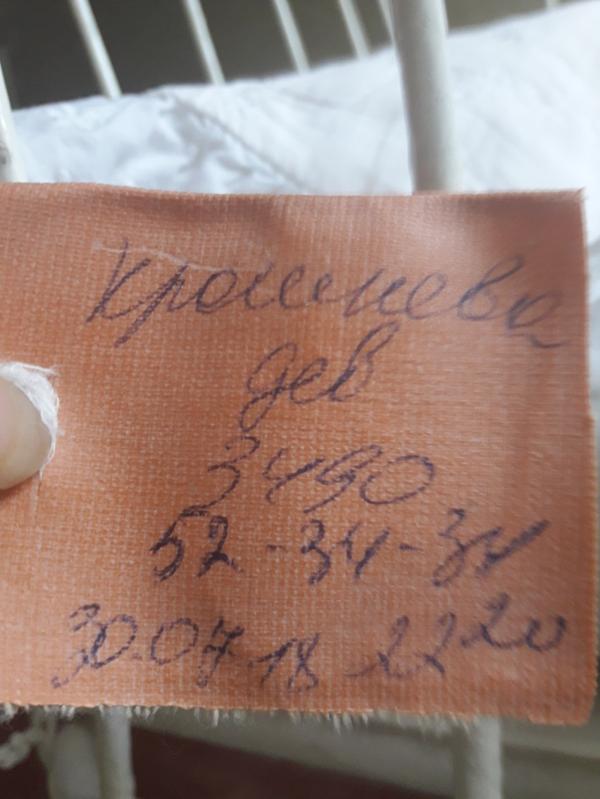 дев
3490
52-34-34
30.07.18 22 20